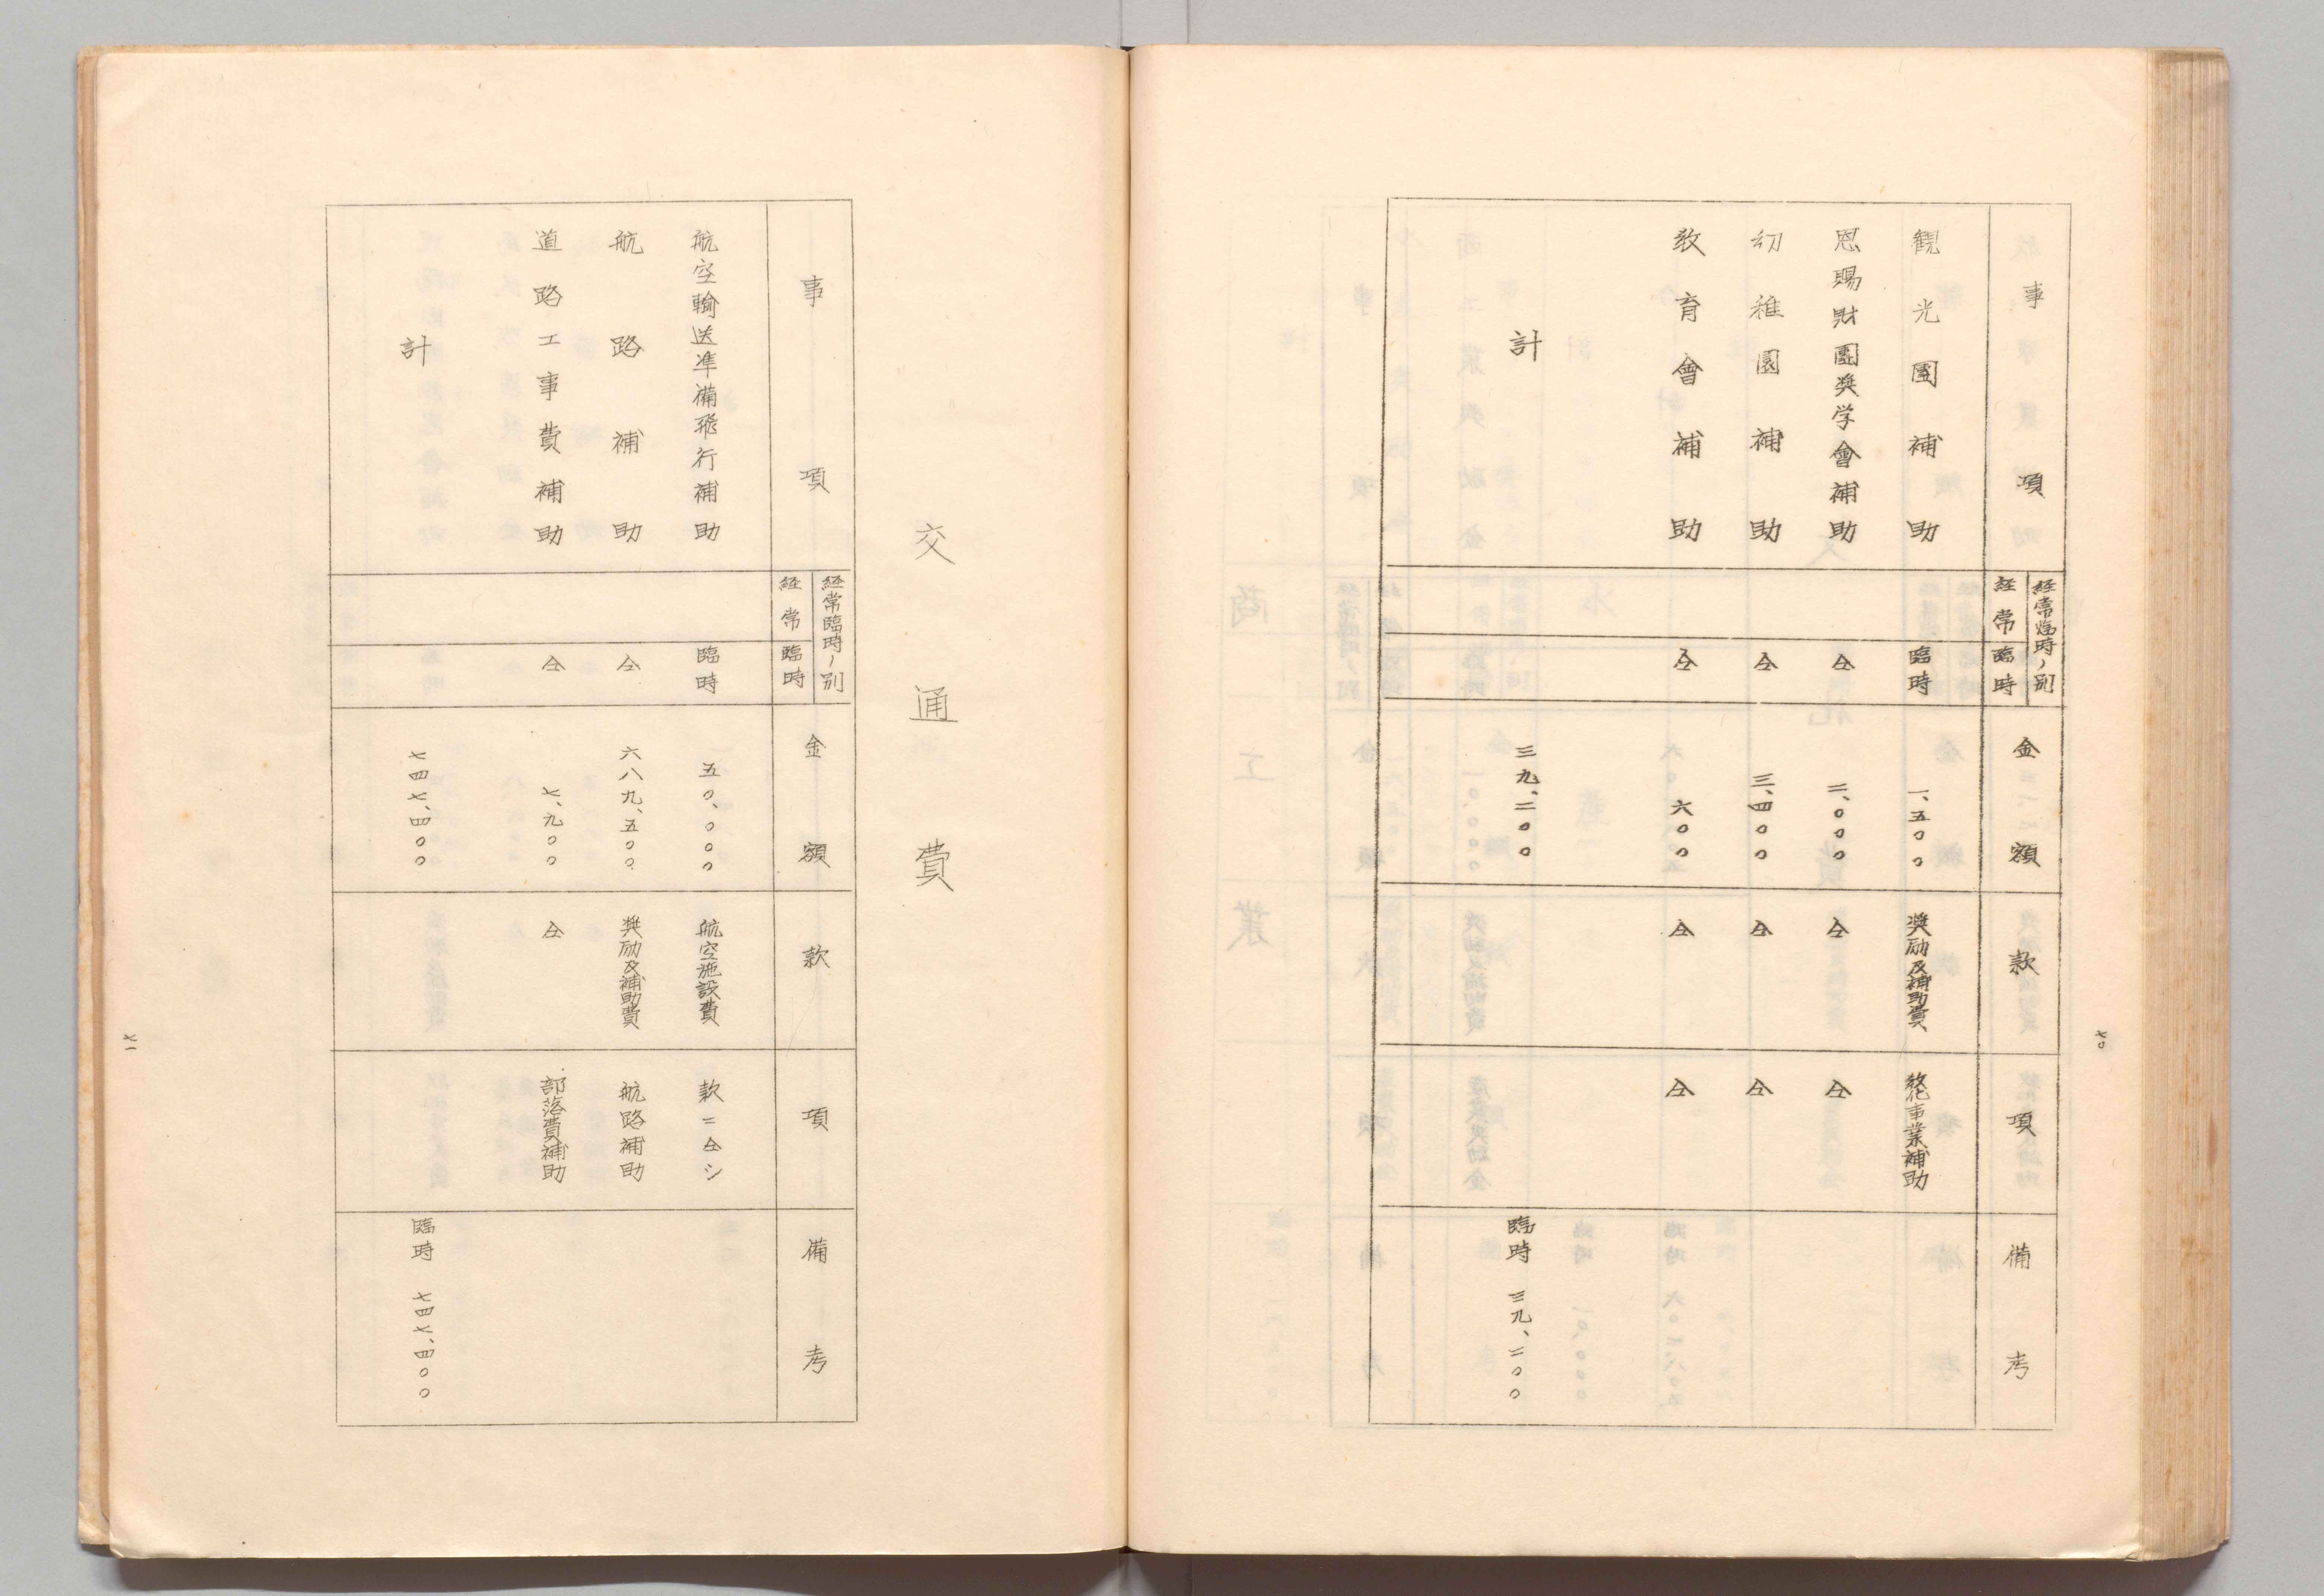 事項
経常臨時ノ別
経常
臨時
金額
款
項
備考
観光團補助
臨時
一、五〇〇
奨励及補助費
敎化事業補助
恩賜財團奨学會補助
仝
二、〇〇〇
仝
仝
幼稚園補助
仝
三、四〇〇
仝
仝
敎育會補助
仝
六〇〇
仝
仝
計
三九、二〇〇
臨時 三九、二〇〇
七〇
交通費
事項
経常臨時ノ別
経常
臨時
金額
款
項
備考
航空輸送準備飛行補助
臨時
五〇、〇〇〇
航空施設費
款ニ仝シ
航路補助
仝
六八九、五〇〇
奨励及補助費
航路補助
道路工事費補助
仝
七、九〇〇
仝
部落費補助
計
七四七、四〇〇
臨時 七四七、四〇〇
七一